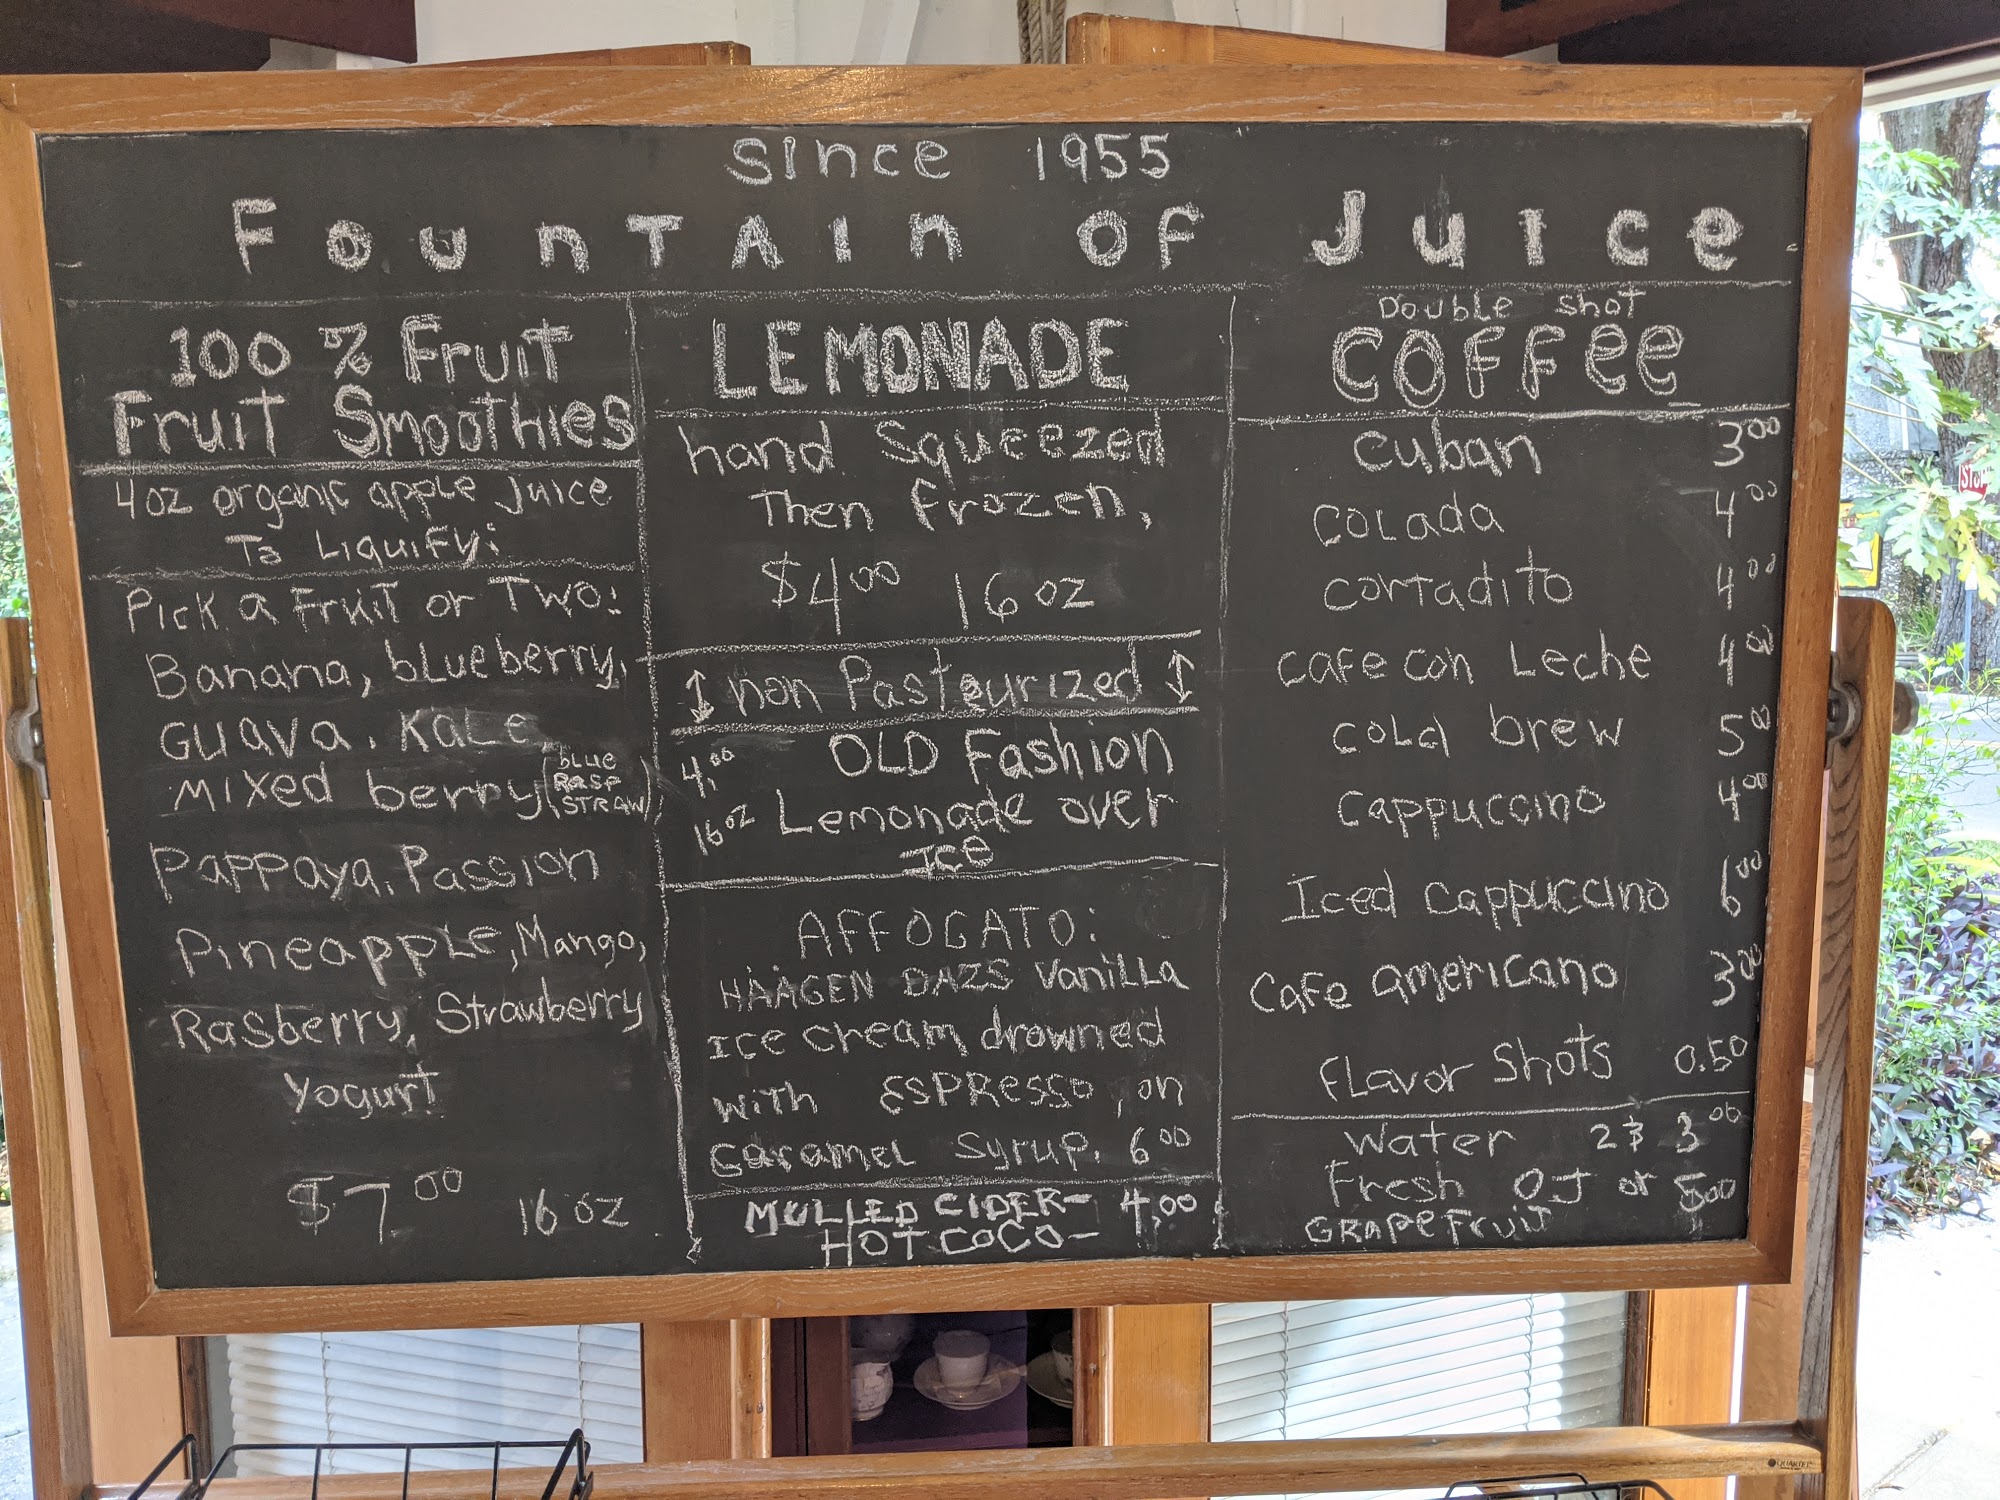 Since 1955
Fountain of Juice
100 % Fruit
Fruit Smoothies
4oz organic apple Juice
To Liquify:
Pick a Fruit or Two:
Banana, blueberry,
Guava, Kale,
Mixed berry (blue
Rasp
STRAW)
Pappaya, Passion
Pineapple, Mango,
Rasberry, Strawberry
Yogurt
$7.00 16 oz
LEMONADE
hand Squeezed
Then Frozen,
$4.00 16 oz
non Pasteurized
4.00 OLD Fashion
16oz Lemonade over
ICE
AFFOGATO:
HÄAGEN DAZS Vanilla
Ice cream drowned
with ESPRESSO, on
Caramel Syrup. 6.00
MULLED CIDER- 4.00
HOT COCO-
Double Shot
COFFEE
Cuban 3.00
Colada 4.00
Cortadito 4.00
Cafe con Leche 4.00
Cold brew 5.00
Cappuccino 4.00
Iced Cappuccino 6.00
Cafe americano 3.00
Flavor Shots 0.50
Water 2 & 3.00
Fresh OJ or 5.00
Grapefruit
STOP
QUARTET